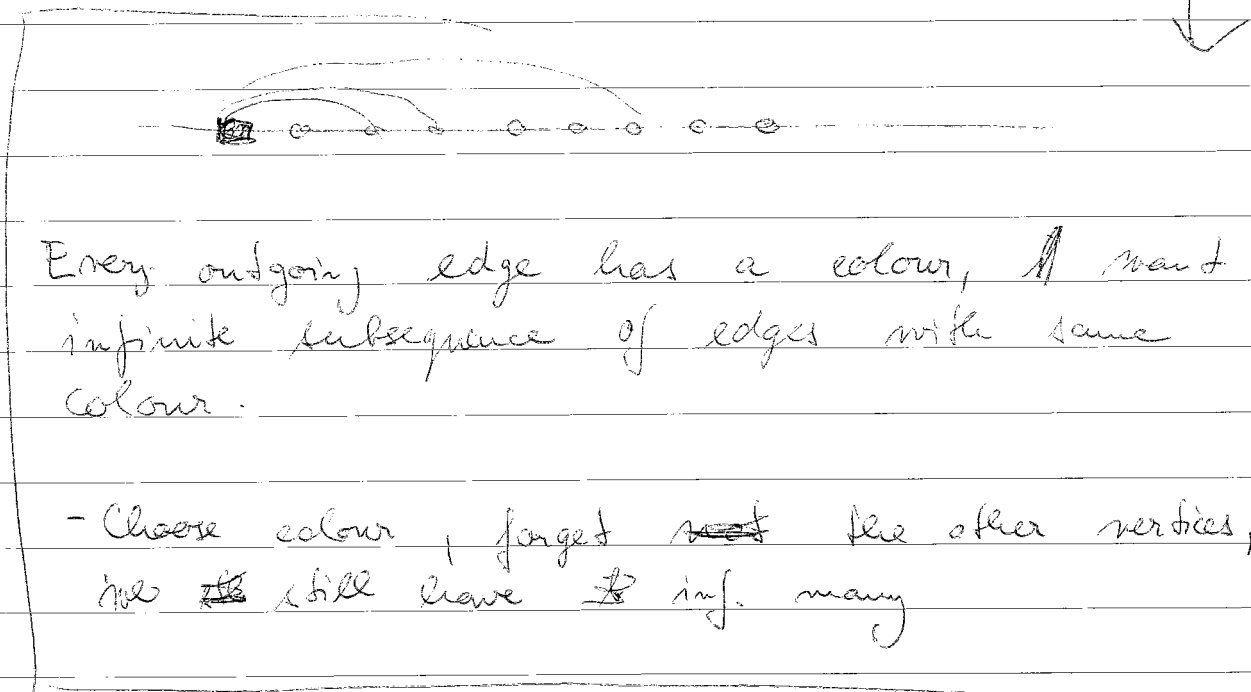 Every outgoing edge has a colour, I want
infinite subsequence of edges with same
colour.
- Choose colour, forget the other vertices,
we still have inf. many